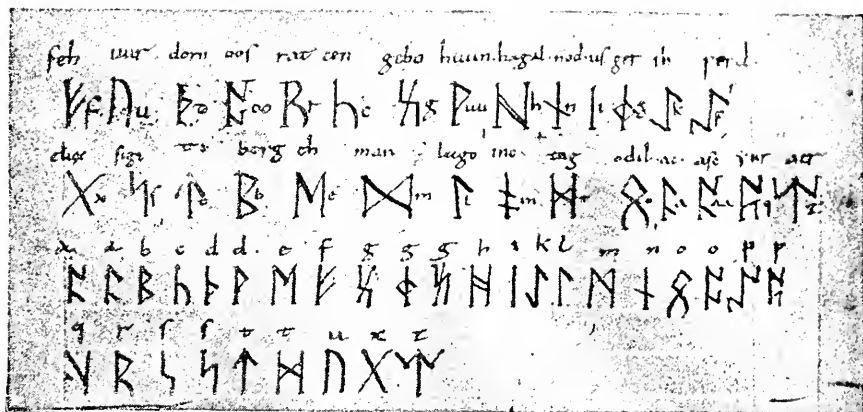 feh uur dorn oos rat cen gebo huun hagal nod is ger ih perd
ᚠ f ᚢ u ᚦ ᚩ ᚱ r ᚳ c g ᚹ uu ᚻ h ᚾ n ᛁ i ᛡ g ᛇ k
elux sigi berg eh man lago inc tag odil ac asc yur aer
ᚷ x ᛋ s ᛏ t ᛒ b ᛖ e ᛗ m ᛚ l ᛗ ᛟ o ᚪ a
a a b c d d e f g g g h i k l m n o o p p
ᚫ ᚪ ᛒ ᚳ ᚦ ᚹ ᛖ ᚠ ᛡ ᚻ ᛁ ᛇ ᛚ ᛗ ᚾ ᛟ ᚩ
q r s s t t u x z
ᚱ ᛋ ᛏ ᛗ ᚢ ᚷ